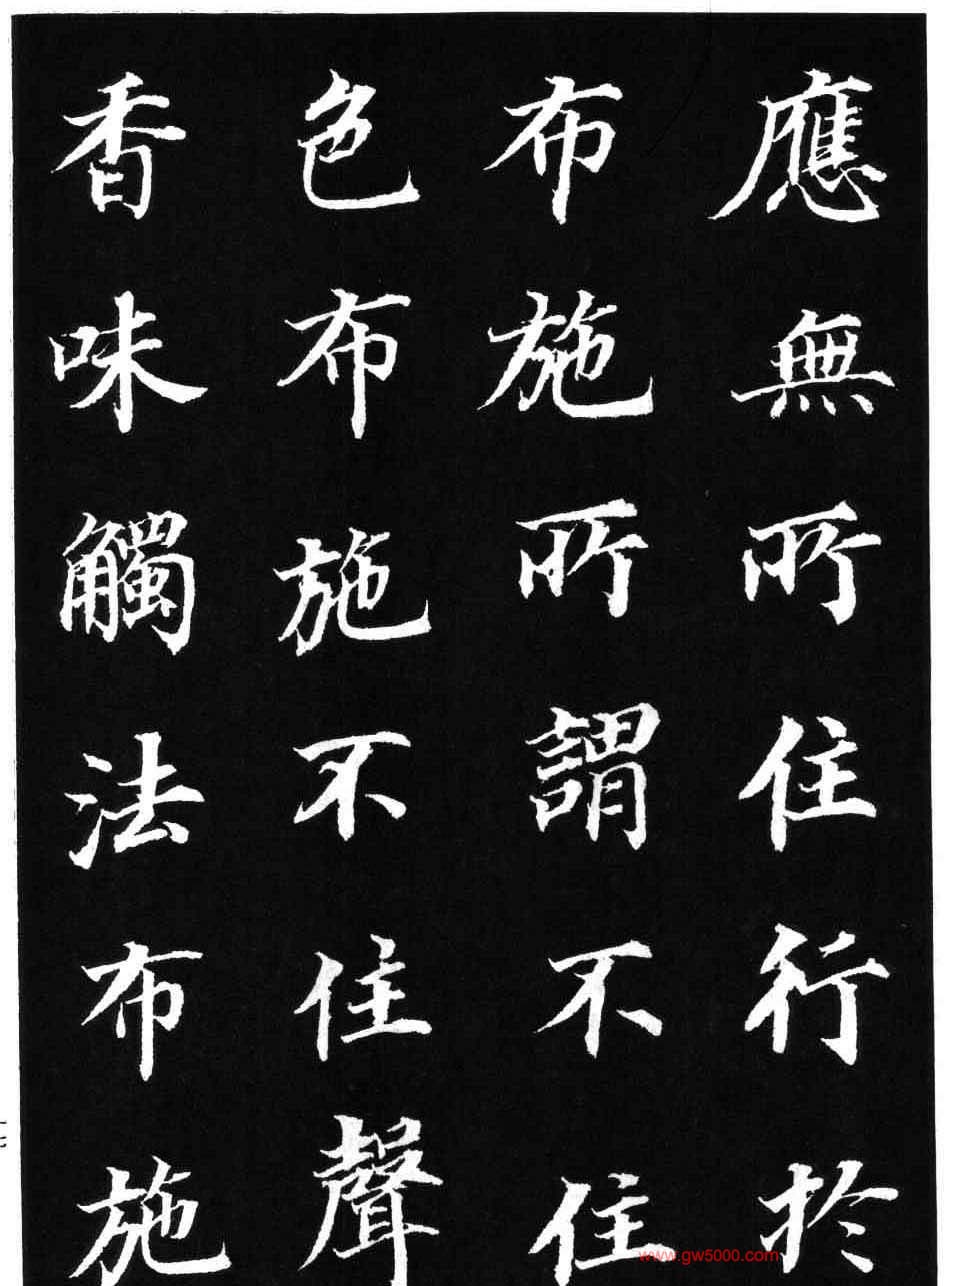 應無所住行於
布施所謂不住
色布施不住聲
香味觸法布施
www.gw5000.com